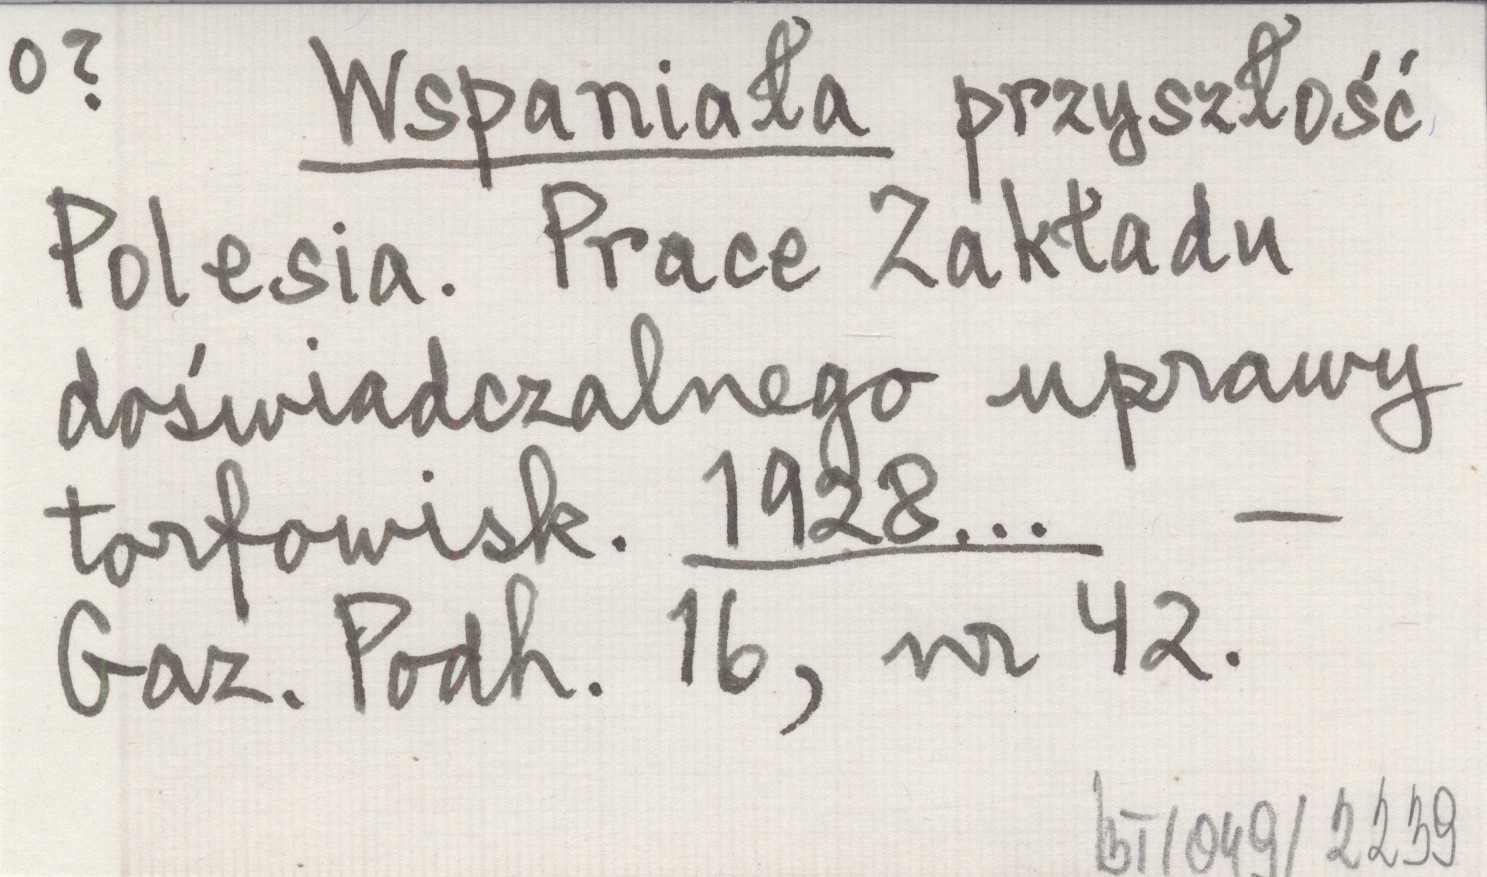 o?
Wspaniała przyszłość
Polesia. Prace Zakładu
doświadczalnego uprawy
torfowisk. 1928... —
Gaz. Podh. 16, nr 42.
BI/049/2239